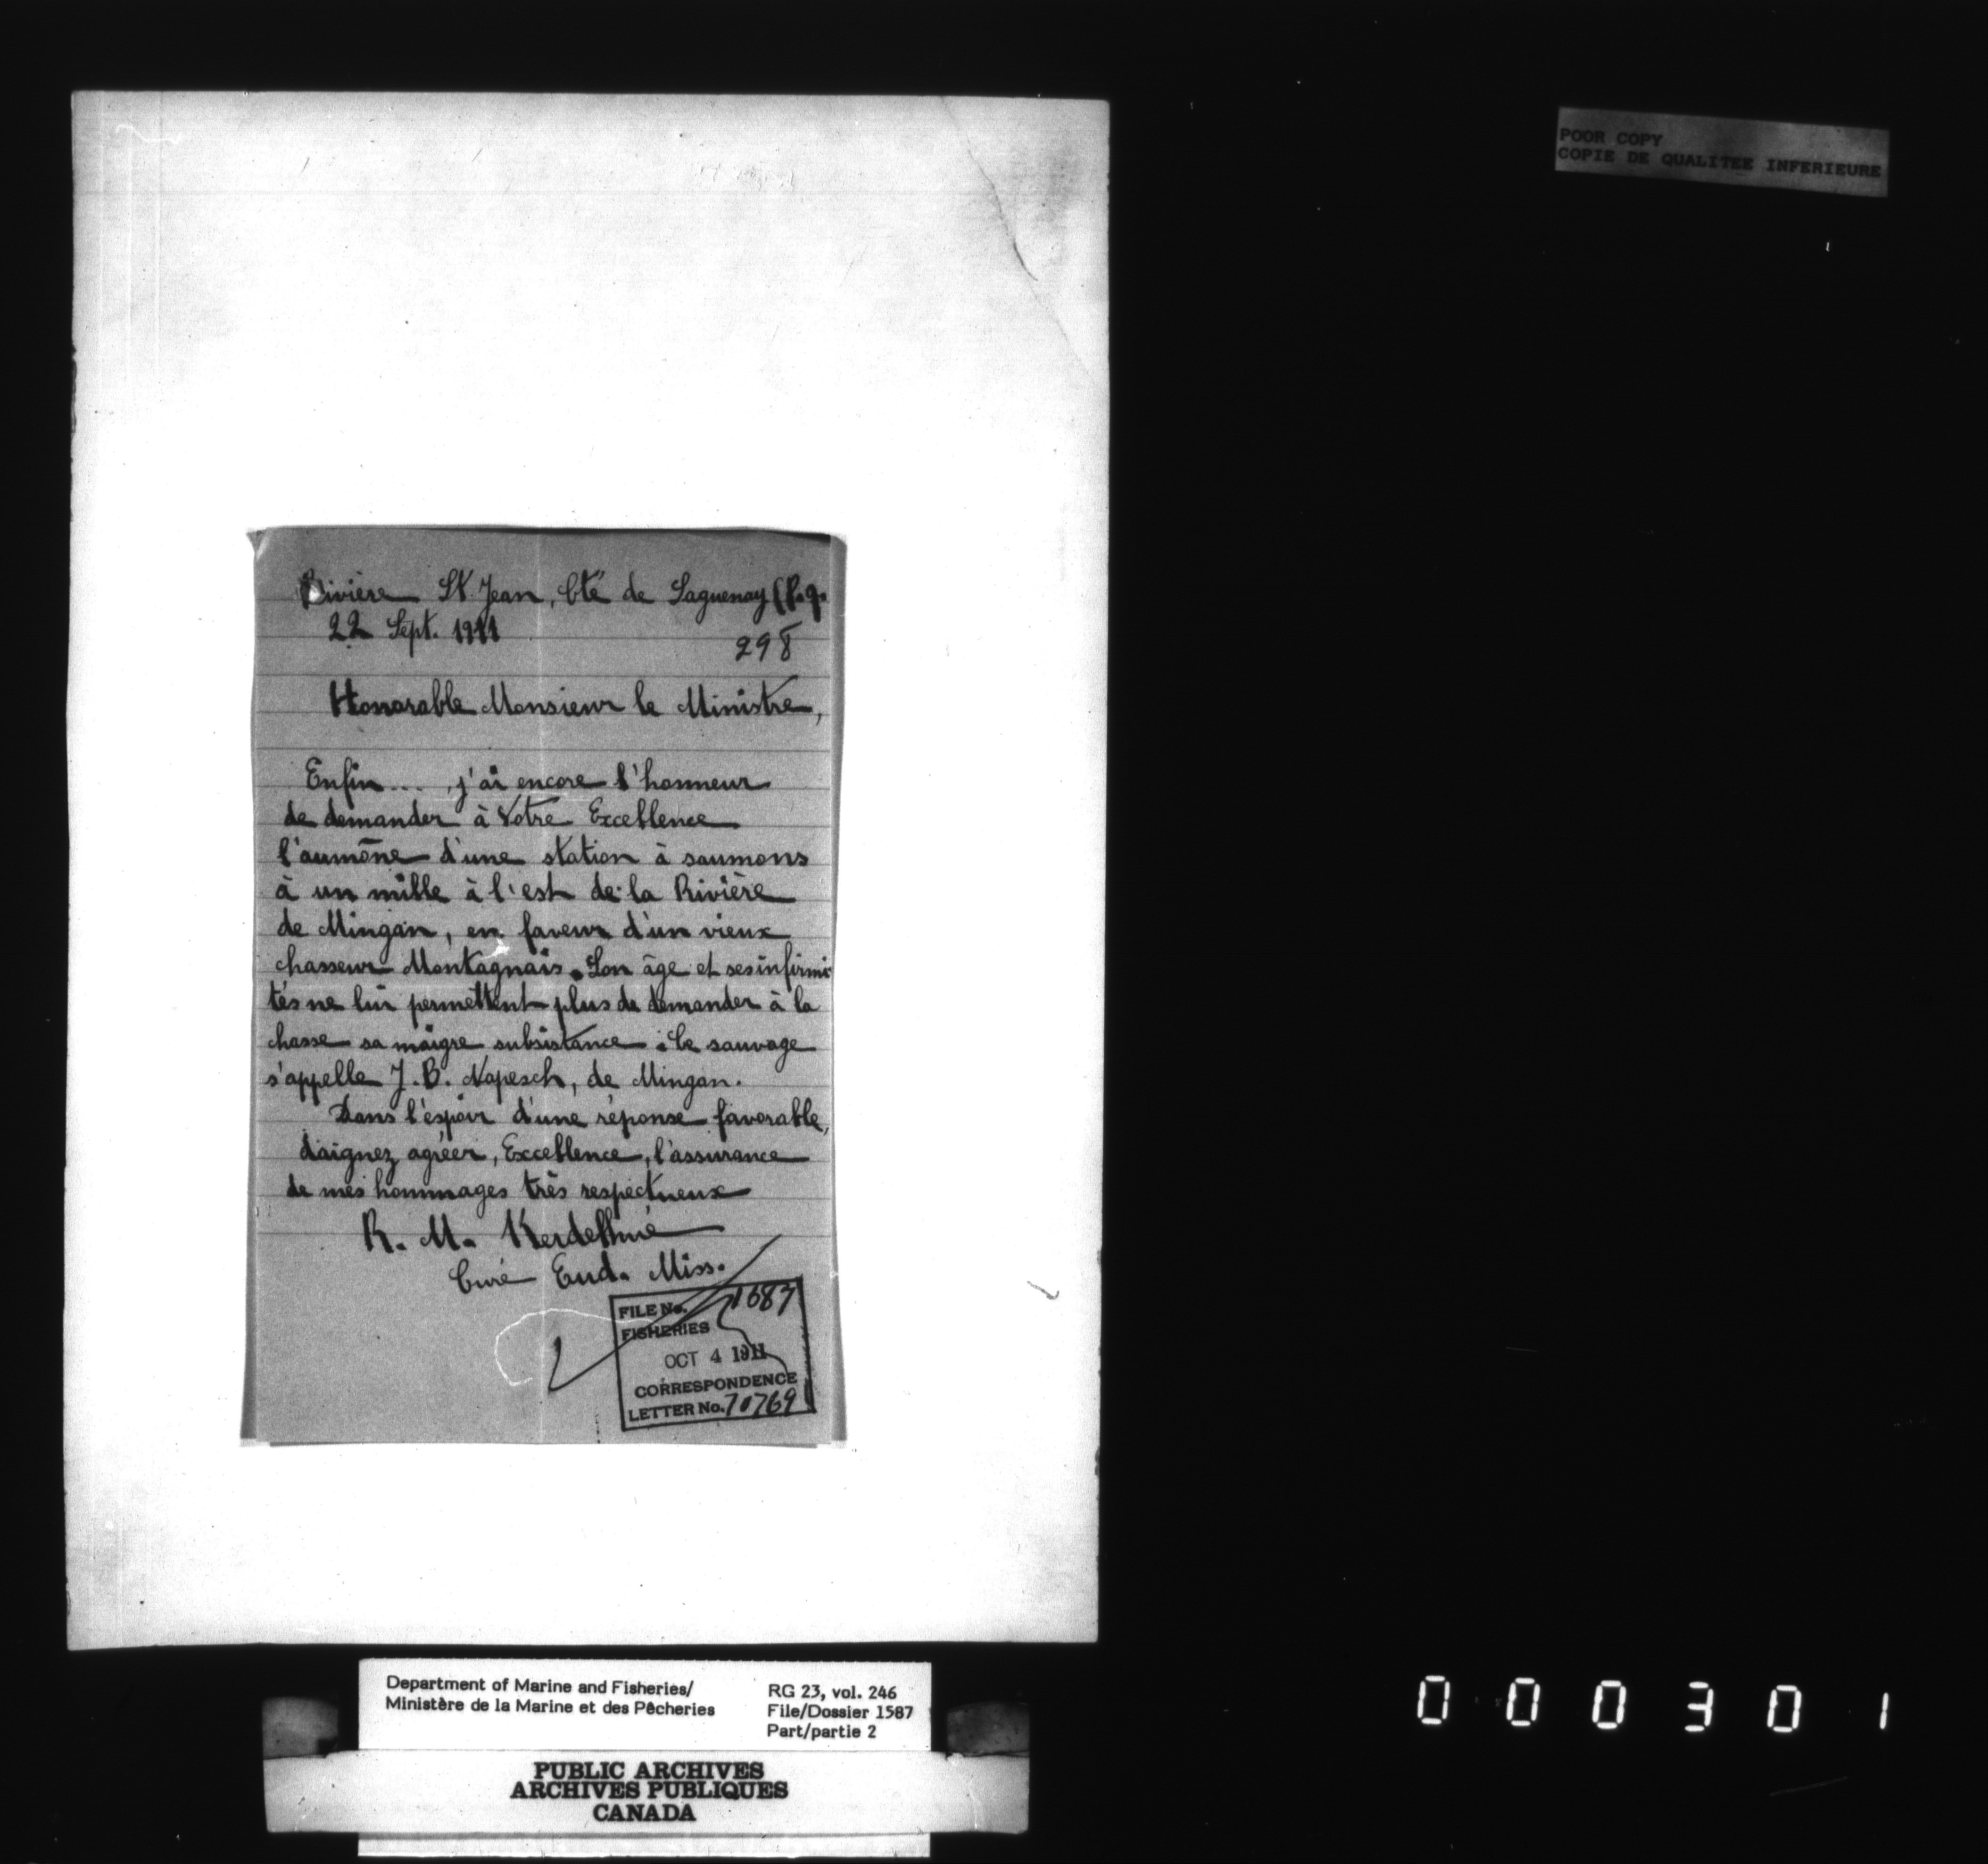 POOR COPY
COPIE DE QUALITEE INFERIEURE
Rivière St. Jean, Cté de Saguenay (P.q.
22 Sept. 1911
298
Honorable Monsieur le Ministre,
Enfin... j'ai encore l'honneur
de demander à Votre Excellence
l'aumône d'une station à saumons
à un mille à l'est de la Rivière
de Mingan, en faveur d'un vieux
chasseur Montagnais. Son âge et ses infirmi
tés ne lui permettent plus de demander à la
chasse sa maigre subsistance. Ce sauvage
s'appelle J. B. Napesch, de Mingan.
Dans l'espoir d'une réponse favorable,
daignez agréer, Excellence, l'assurance
de mes hommages très respectueux
R. M.
Curé Eud. Miss.
FILE No. 1587
FISHERIES
OCT 4 1911
CORRESPONDENCE
LETTER No. 70769
Department of Marine and Fisheries/
Ministère de la Marine et des Pêcheries
RG 23, vol. 246
File/Dossier 1587
Part/partie 2
PUBLIC ARCHIVES
ARCHIVES PUBLIQUES
CANADA
000301